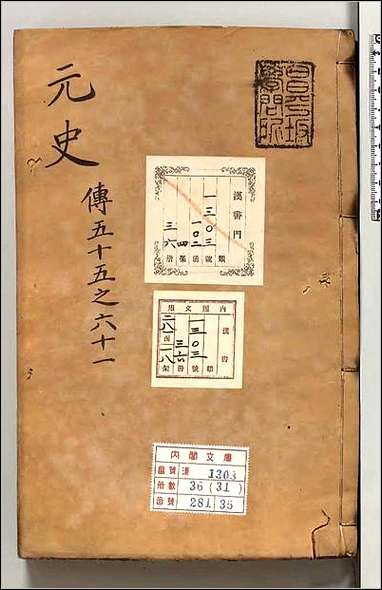 元史
傳五十五之六十一
昌平坂
學問所
漢書門
類
一三〇三
號
一〇二
函
四
架
三六
冊
內閣文庫
漢書
一三〇三
類
號
三六
冊
二八一
函
一八
架
內閣文庫
番號 漢 1303
冊數 36 (31)
函號 281 35